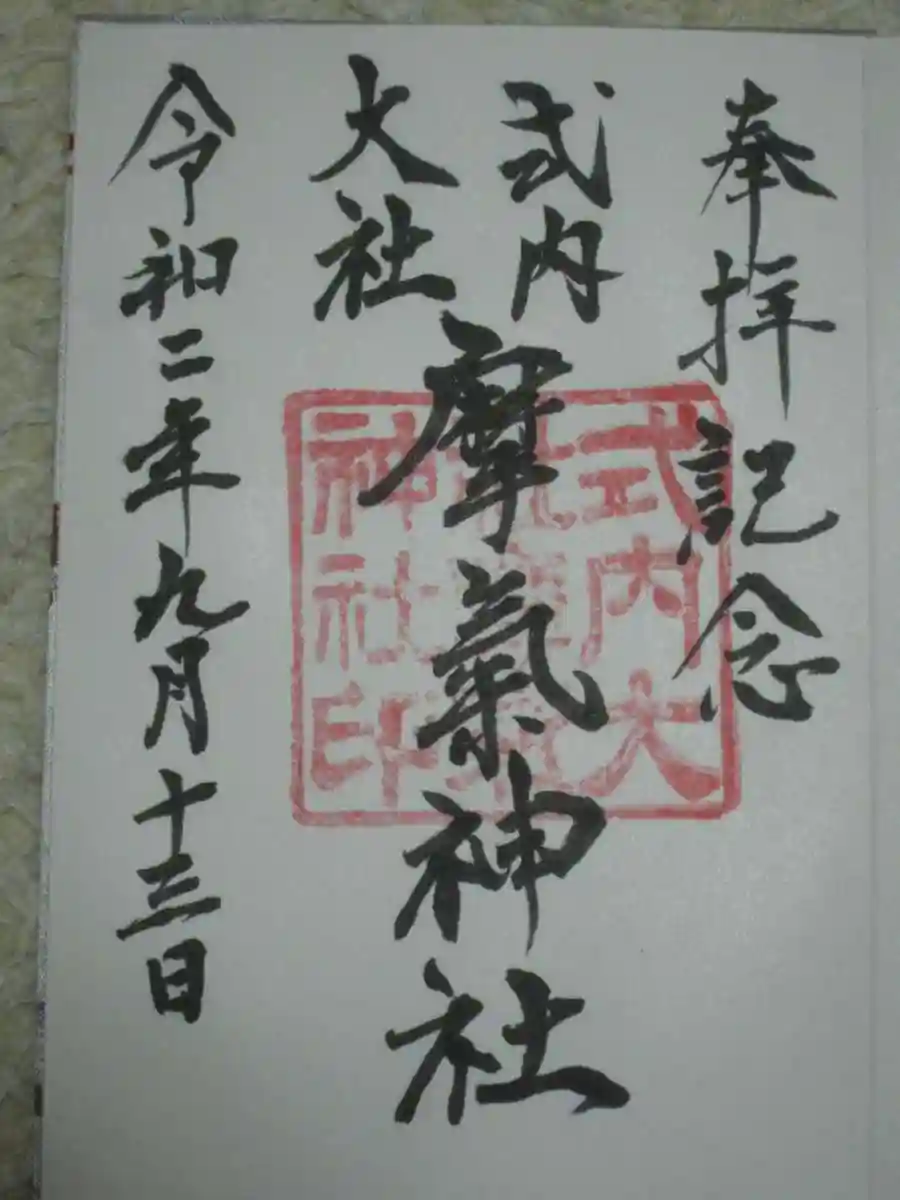 奉拝記念
式内
大社
摩氣神社
令和二年九月十三日
式内大
社摩氣
神社印